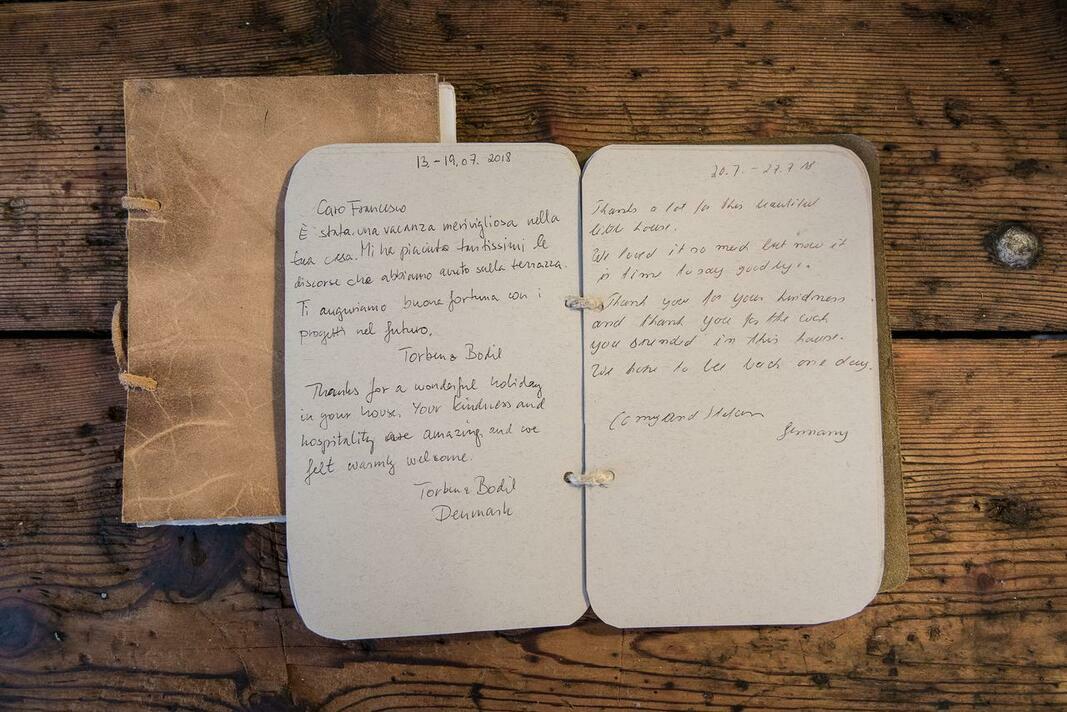 13.-19.07. 2018
Caro Francesco
È stata una vacanza merivigliosa nella
tua casa. Mi ha piaciuto tantissimi le
discorse che abbiamo avuto sulla terrazza.
Ti auguriamo buona fortuna con i
progetti nel futuro.
Torben & Bodil
Thanks for a wonderful holiday
in your house. Your kindness and
hospitality are amazing and we
felt warmly welcome.
Torben & Bodil
Denmark
20.7. - 27.7 18
Thanks a lot for this beautiful
little house.
We loved it so much but now it
is time to say goodbye.
Thank you for your kindness
and thank you for the work
you in this house.
We hope to be back one day.
and Stefan
Germany